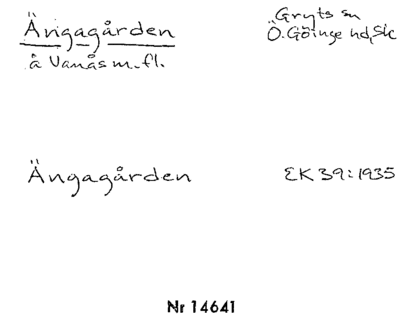 Ängagården
å Vanås m. fl.
Gryts sn
Ö. Göinge hd, Sk
Ängagården
EK 39:1935
Nr 14641